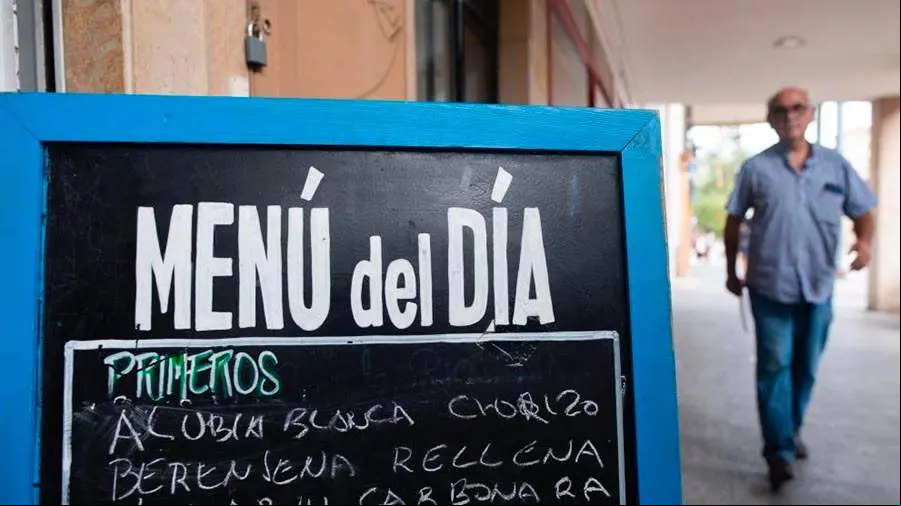 MENÚ del DÍA
PRIMEROS
ALUBIA BLANCA CHORIZO
BERENJENA RELLENA
CARBONARA